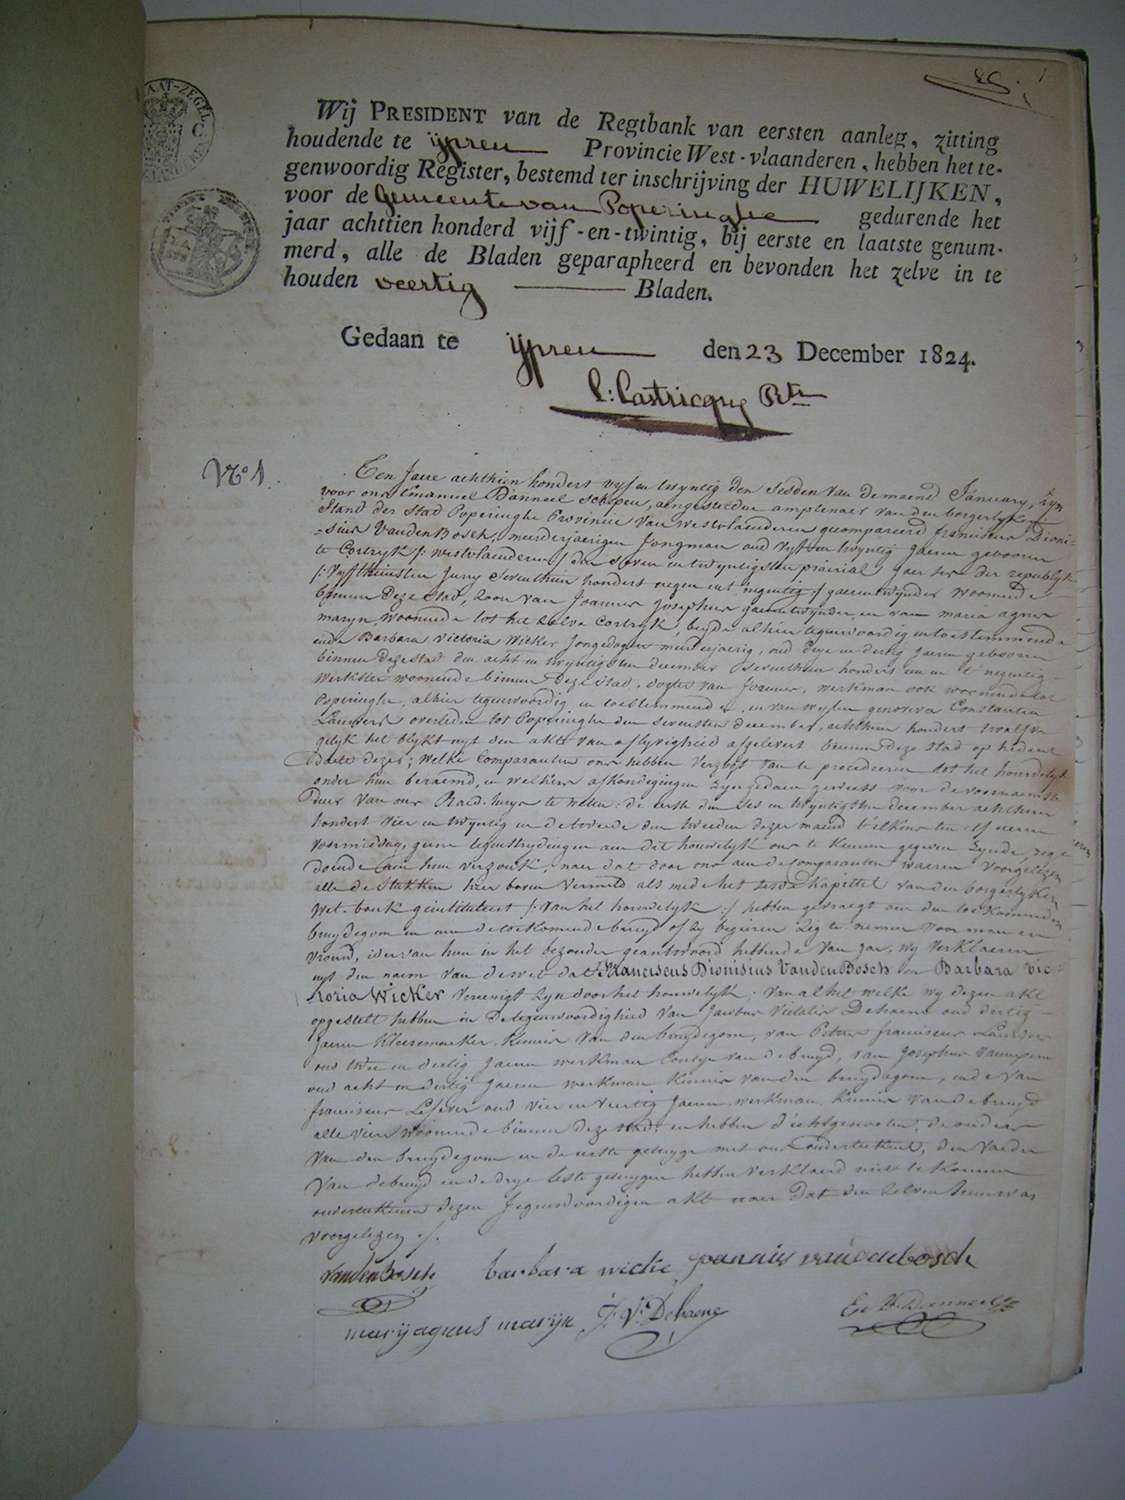 Wij PRESIDENT van de Regtbank van eersten aanleg, zitting
houdende te ijpren Provincie West-vlaanderen, hebben het te-
genwoordig Register, bestemd ter inschrijving der HUWELIJKEN,
voor de Gemeente van Poperinghe gedurende het
jaar achttien honderd vijf-en-twintig, bij eerste en laatste genum-
merd, alle de Bladen geparapheerd en bevonden het zelve in te
houden veertig Bladen.
Gedaan te ijpren den 23 December 1824.
N.° 1
Een Jaere achthien hondert vyf en twyntig den sesden van de maend January,
voor ons Emanuel Danneel schepen, aengestelden amptenaer van den borgerlyken
Stand der stad Poperinghe Provincie van westvlaenderen gecompareerd franciscus Dioni-
-sius VandenBosch, meerderjaerigen Jongman oud vyf en twyntig jaeren gebooren
te Cortryk /: westvlaenderen :/ den seven en twyntigsten prairial jaer ses der republyk
/: vyfthiensten Juny seventhien hondert negen en t' negentig :/ woonende
binnen deze stad, zoon van Joannes Josephus en van maria agnes
maryn, woonende tot het zelve Cortryk, beyde alhier tegenwoordig en toestemmende
ende Barbara Victoria Wicker Jongedogter meerderjaerig, oud dry en dertig jaeren gebooren
binnen deze stad den acht en twyntigsten december seventhien hondert een en t' negentig
werkster woonende binnen deze stad, dogter van Joannes, werkman ook woonende tot
Poperinghe, alhier tegenwoordig en toestemmende, en van wylen genoveva Constantia
Lauwers overleden tot Poperinghe den sevensten december achthien hondert twaelf
gelyk het blykt uyt den akte van aflyvigheid afgelevert binnen deze stad op heden
date dezer; welke Comparanten ons hebben verzogt van te procederen tot het houwelyk
onder hun beraemd, en welkers afkondigingen zyn gedaen geweest voor de voornaemste
Deur van ons Raed-huys te weten: de eerste den ses en twyntigsten december achthien
hondert vier en twyntig en de tweede den tweeden dezer maend t'elkens ten elf ueren
voormiddag, geene tegenstrydingen aen dit houwelyk ons te kennen gegeven zynde,
doende aen hun verzoek, naer dat door ons aen de Comparanten waeren voorgelezen
alle de stukken hier boven vermeld als mede het sesde kapittel van den borgerlyken
Wet-boek geintituleert /: van het houwelyk :/ hebben gevraegt aen den toekomenden
bruydegom en aen de toekomende bruyd of zy begeeren zig te nemen voor man en
vrouw, ider van hun in het bezonder geantwoord hebbende van Jae, wy verklaeren
uyt den naem van de wet dat Franciscus Dionisius VandenBosch en Barbara Vic-
toria Wicker vereenigt zyn door het houwelyk; van al het welke wy dezen akt
opgestelt hebben in de tegenwoordigheid van Jacobus Vitalis Dehaene oud dertig
jaeren kleermaeker, kennis van den bruydegom, van Petrus franciscus Lauwers
oud twee en dertig jaeren werkman Cousyn van de bruyd, van Josephus
oud acht en dertig jaeren werkman kennis van den bruydegom, ende van
franciscus Lefever oud vier en veertig jaeren, werkman, kennis van de bruyd
alle vier woonende binnen deze stad: en hebben d'echtgenooten, de ouders
van den bruydegom en de eerste getuyge met ons onderteekent, den vaeder
van de bruyd en de drye leste getuygen hebben verklaerd niet te konnen
onderteekenen dezen Jegenwoordigen akt naer dat den zelven hun was
voorgelezen ./.
VandenBosch barbara wicke joannis vandenbosch
marij agnes marijn J. V. Dehaene